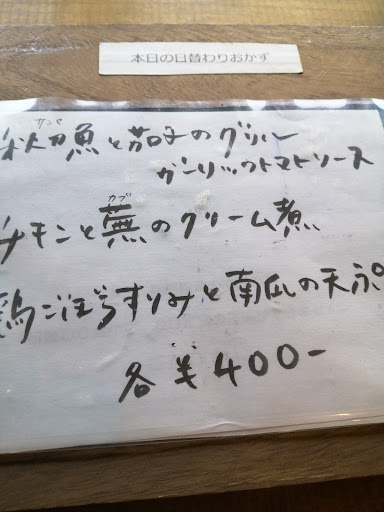 本日の日替わりおかず
サンマ
秋刀魚と茄子のグリル
ガーリックトマトソース
カブ
チキンと蕪のクリーム煮
鶏ごぼうすりみと南瓜の天ぷら
各¥400-